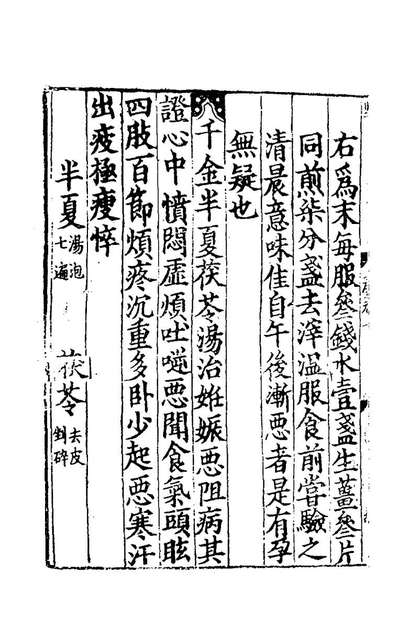 右爲末每服叄錢水壹盞生薑叄片
同煎柒分盞去滓溫服食前嘗驗之
清晨意味佳自午後漸惡者是有孕
無疑也
千金半夏茯苓湯治姙娠惡阻病其
證心中憒悶虛煩吐𠻳惡聞食氣頭眩
四肢百節煩疼沉重多卧少起惡寒汗
出疲極瘦悴
半夏湯泡七遍 茯苓去皮剉碎